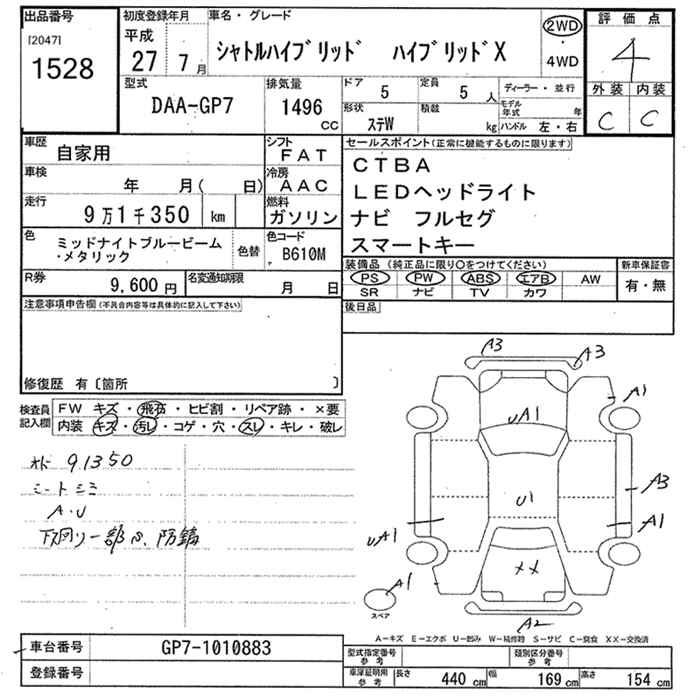 出品番号
[2047]
1528
初度登録年月
平成
27 7 月
車名・グレード
シャトルハイブリッド ハイブリッドX
2WD
・
4WD
評価点
4
外装 内装
C C
型式
DAA-GP7
排気量
1496 CC
ドア 5
定員 5 人
形状 ステW
積載 kg
ディーラー・並行
モデル年式 年
ハンドル 左・右
車歴 自家用
シフト FAT
車検 年 月( 日)
冷房 AAC
走行 9万1千350 km
燃料 ガソリン
色 ミッドナイトブルービーム・メタリック
色替
色コード B610M
R券 9,600 円
名変通知期限 月 日
セールスポイント(正常に機能するものに限ります)
CTBA
LEDヘッドライト
ナビ フルセグ
スマートキー
装備品 (純正品に限り○をつけてください)
PS PW ABS エアB AW
SR ナビ TV カワ
新車保証書
有・無
後日品
注意事項申告欄(不具合内容等は具体的に記入して下さい)
修復歴 有〔箇所 〕
検査員記入欄
FW キズ・飛石・ヒビ割・リペア跡・×要
内装 キズ・汚レ・コゲ・穴・スレ・キレ・破レ
91350
A・U
A3
A3
A1
UA1
A3
U1
A1
UA1
××
A1
スペア
A2
A-キズ E-エクボ U-凹み W-補修跡 S-サビ C-腐食 XX-交換済
車台番号 GP7-1010883
登録番号
型式指定番号 参考
類別区分番号 参考
車庫証明用 参考
長さ 440 cm 幅 169 cm 高さ 154 cm